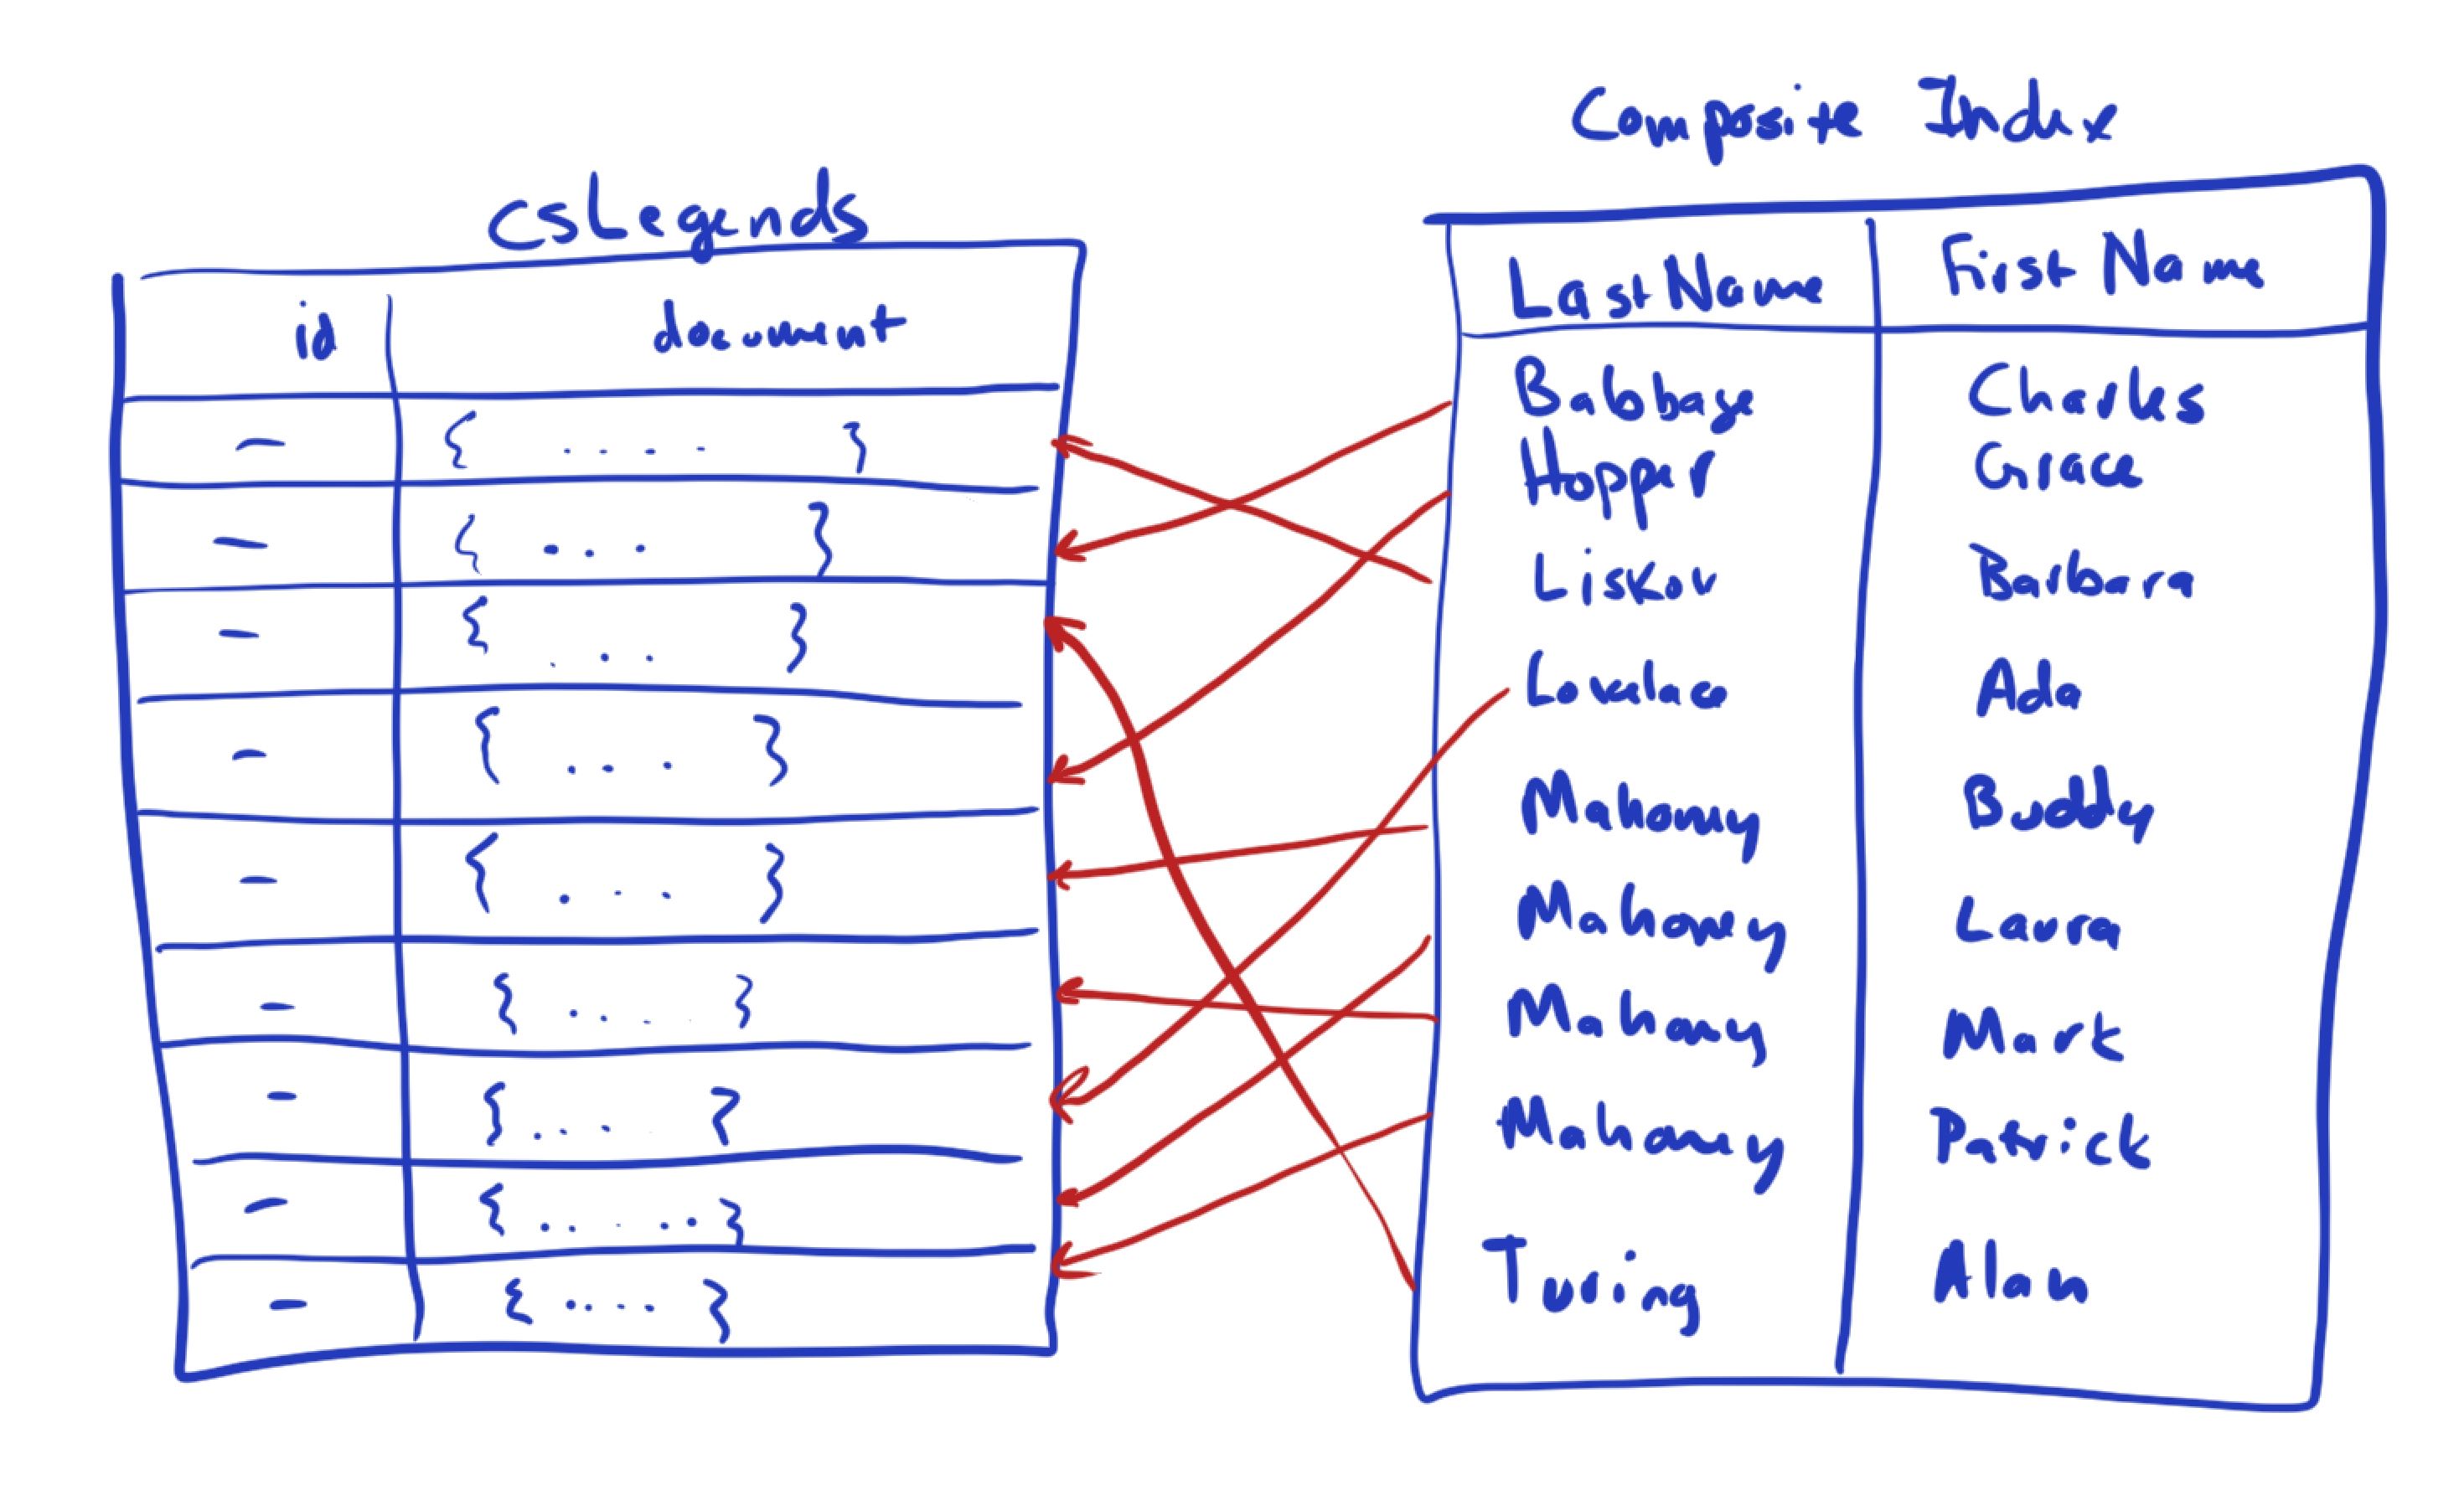 csLegends
id document
- { .... }
- { ... }
- { ... }
- { ... }
- { ... }
- { .... }
- { ... }
- { ..... }
- { .... }
Composite Index
LastName First Name
Babbage Charles
Hopper Grace
Liskov Barbara
Lovelace Ada
Mahoney Buddy
Mahoney Laura
Mahoney Mark
Mahoney Patrick
Turing Alan